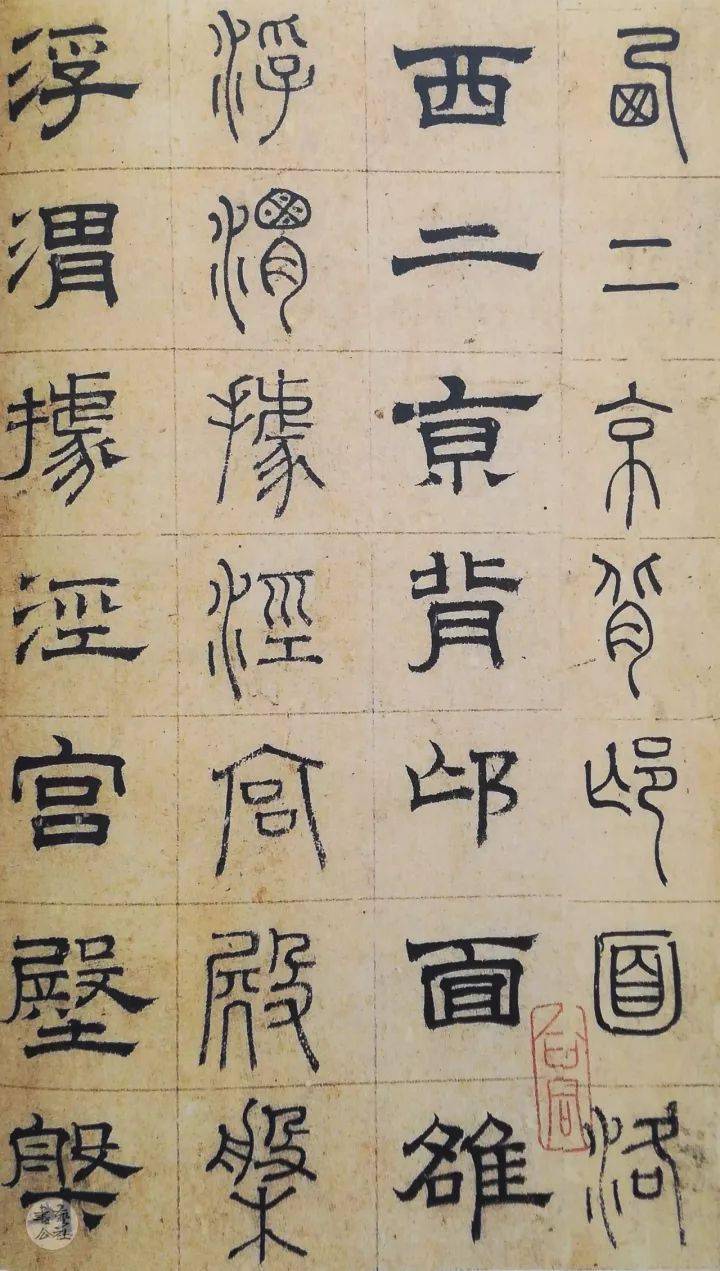 西二京背邙面洛
西二京背邙面雒
浮渭據涇宮殿槃
浮渭據涇宮壂槃